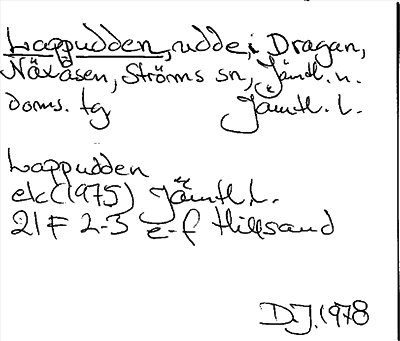 Lappudden, udde, i Dragan,
Näxåsen, Ströms sn, Jämtl. n.
doms. tg Jämtl. l.
Lappudden
ek (1975) Jämtl l.
21F 2-3 e-f Hillsand
D.J. 1978